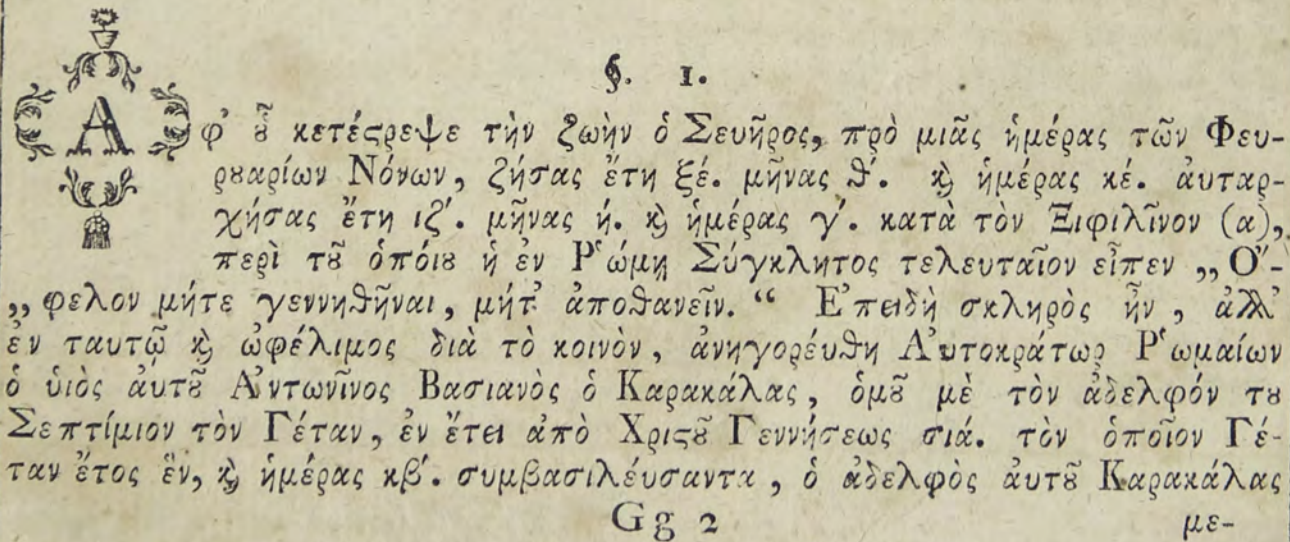 §. 1.
Αφ' ȣ̃ κετέϛρεψε τὴν ζωὴν ὁ Σευῆρος, πρὸ μιᾶς ἡμέρας τῶν Φευ-
ρȣαρίων Νόνων, ζήσας ἔτη ξέ. μῆνας θ'. ϗ ἡμέρας κέ. ἀυταρ-
χήσας ἔτη ιζ'. μῆνας ή. ϗ ἡμέρας γ'. κατὰ τὸν Ξιφιλῖνον (α),
περὶ τȣ̃ ὁπόιȣ ἡ ἐν Ῥώμῃ Σύγκλητος τελευταῖον εἶπεν „Ὄ-
„φελον μήτε γεννηθῆναι, μήτ' ἀποθανεῖν.“ Ἐπειδὴ σκληρὸς ἦν, ἀλλ'
ἐν ταυτῷ ϗ ὠφέλιμος διὰ τὸ κοινὸν, ἀνηγορέυθη Ἀυτοκράτωρ Ῥωμαίων
ὁ ὑιὸς ἀυτȣ̃ Ἀντωνῖνος Βασιανὸς ὁ Καρακάλας, ὁμȣ̃ μὲ τὸν ἀδελφόν τȣ
Σεπτίμιον τὸν Γέταν, ἐν ἔτει ἀπὸ Χριϛȣ̃ Γεννήσεως σιά. τὸν ὁποῖον Γέ-
ταν ἔτος ἓν, ϗ ἡμέρας κβ'. συμβασιλέυσαντα, ὁ ἀδελφὸς ἀυτȣ̃ Καρακάλας
Gg 2 με-